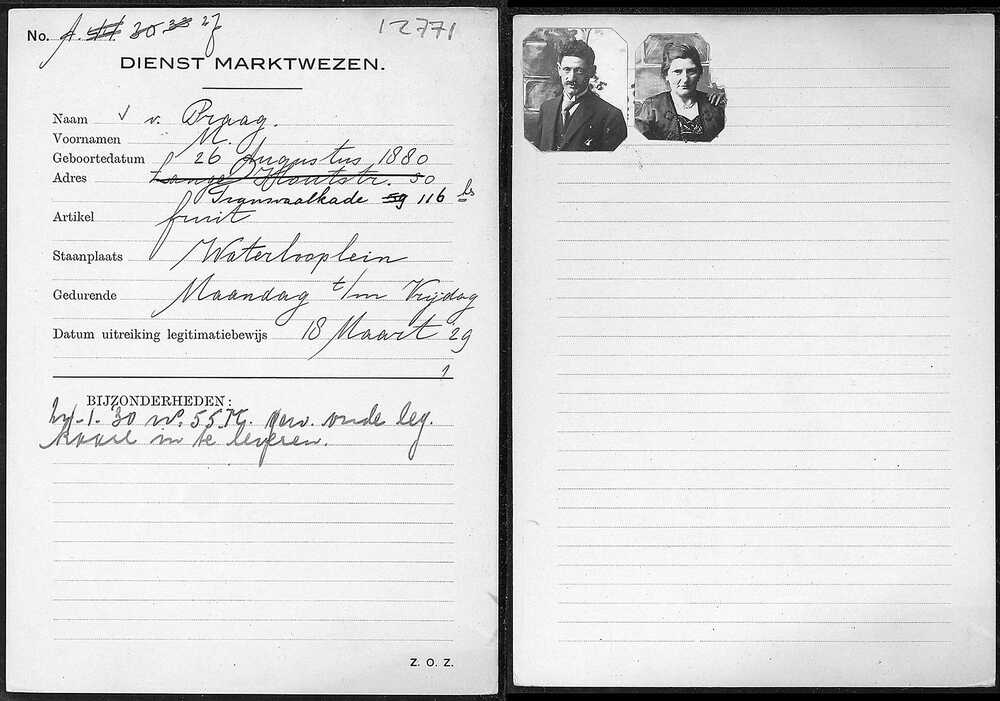 12771
No. A. 41. 30 38 27
DIENST MARKTWEZEN.
Naam v. Praag.
Voornamen M.
Geboortedatum 26 Augustus 1880
Adres Lange Houtstr. 50
Transvaalkade 59 116 hs
Artikel fruit
Staanplaats Waterlooplein
Gedurende Maandag t/m Vrijdag
Datum uitreiking legitimatiebewijs 18 Maart '29
BIJZONDERHEDEN:
-1-'30 oude leg.
kaart in te leveren.
Z. O. Z.